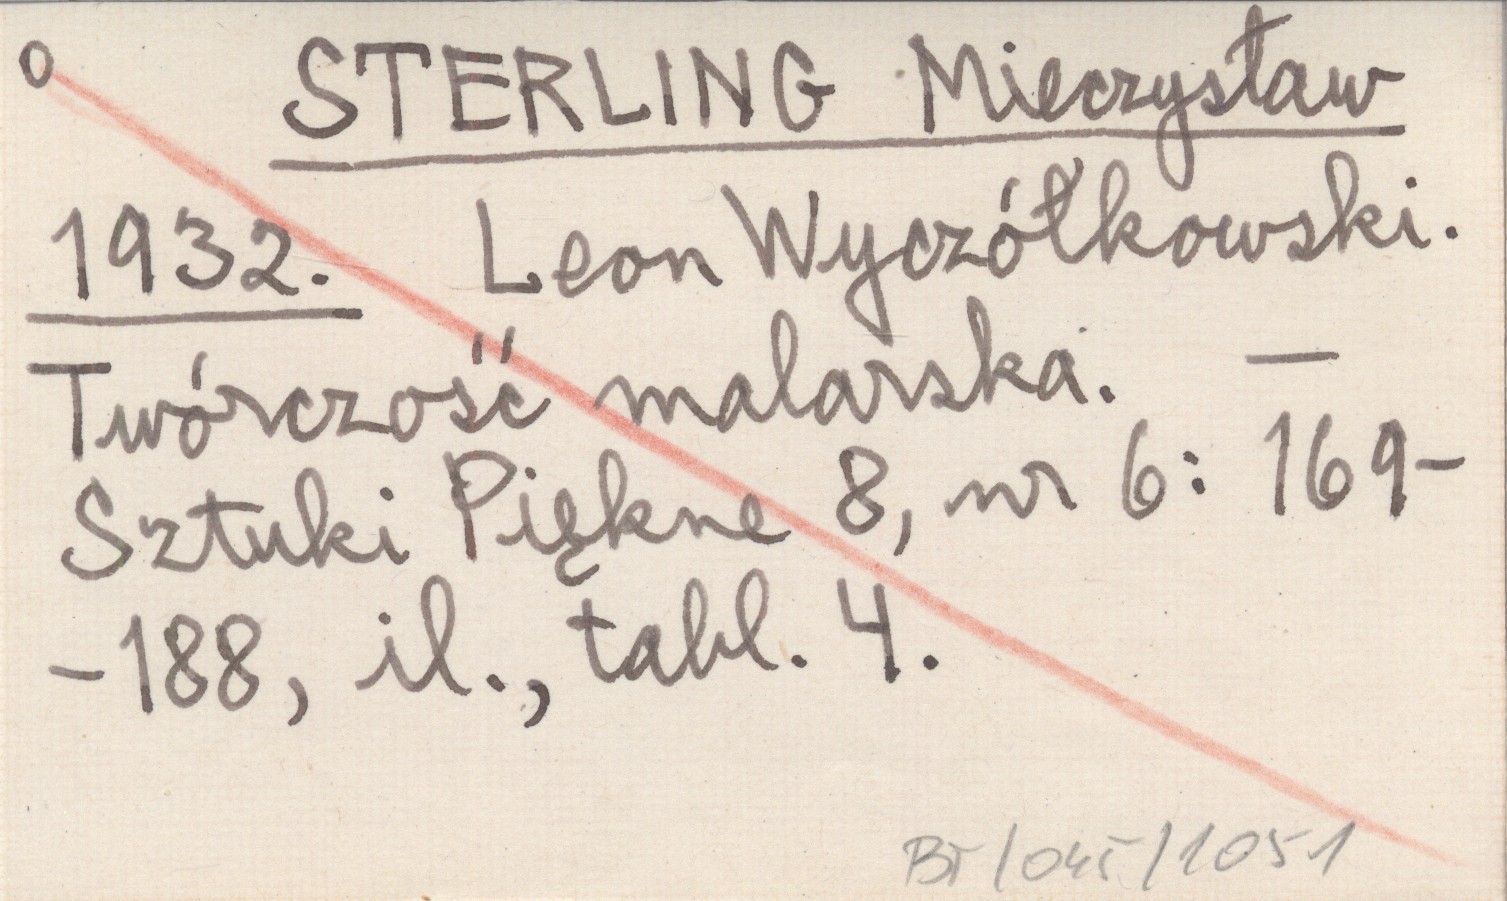 O STERLING Mieczysław
1932. Leon Wyczółkowski.
Twórczość malarska. —
Sztuki Piękne 8, nr 6: 169-
-188, il., tabl. 4.
BT/045/1051